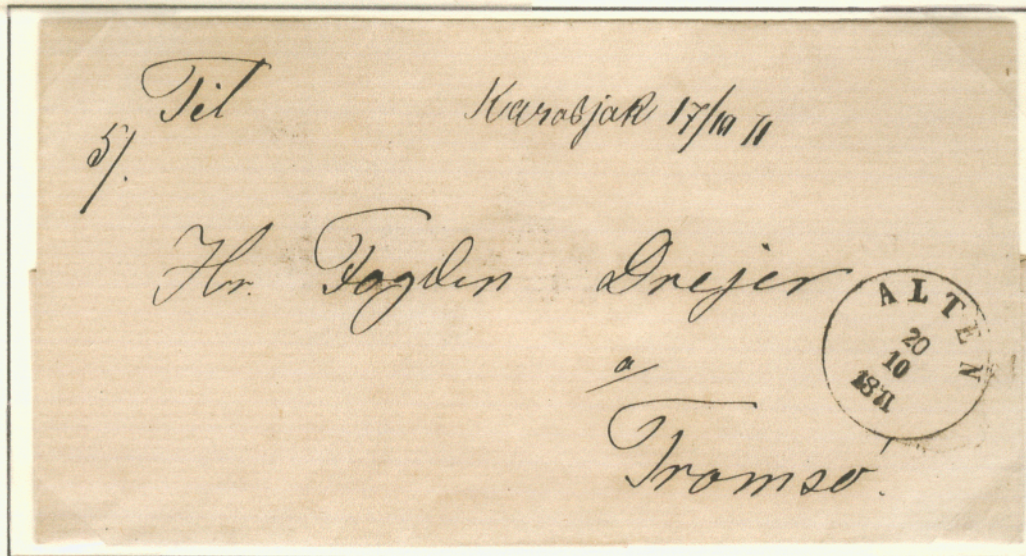 Til Karasjok 17/10 71
5/.
Hr. Fogden Drejer
a/
Tromsø.
ALTEN
20
10
1871